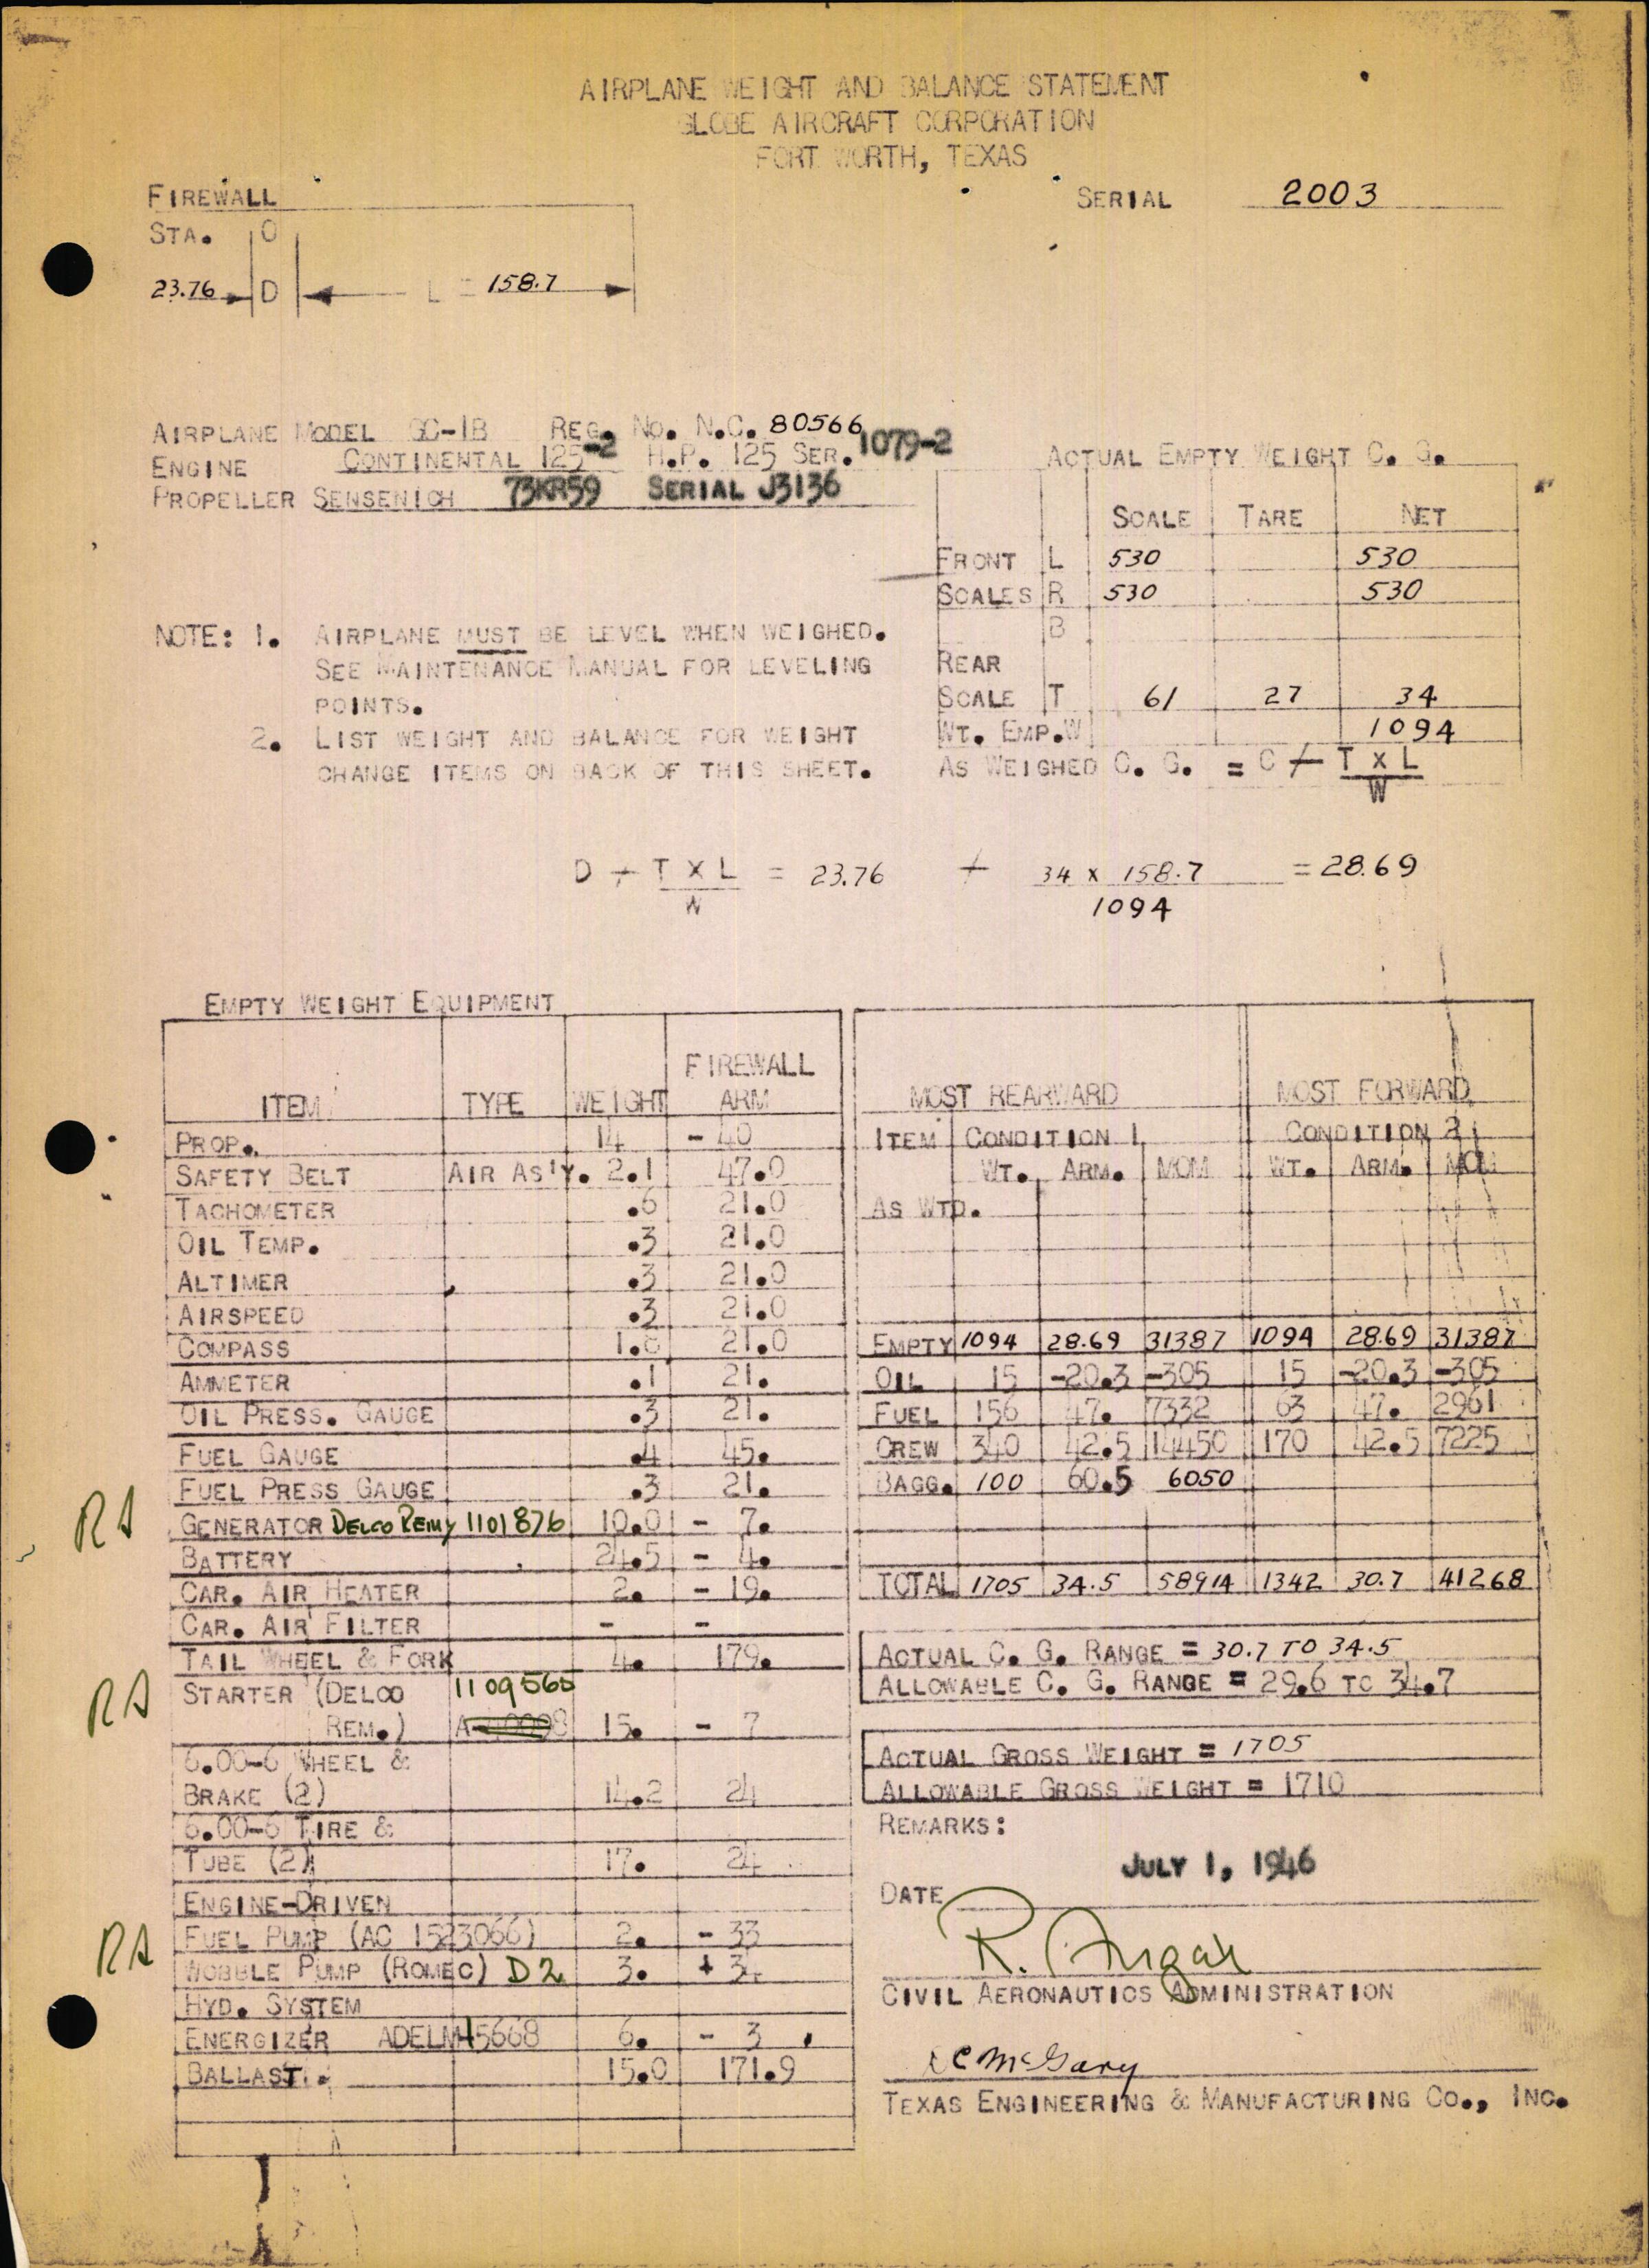 AIRPLANE WEIGHT AND BALANCE STATEMENT
GLOBE AIRCRAFT CORPORATION
FORT WORTH, TEXAS
FIREWALL
SERIAL 2003
STA. 0
23.76 D L = 158.7
AIRPLANE MODEL GC-1B REG. NO. N.C. 80566
ENGINE CONTINENTAL 125-2 H.P. 125 SER. 1079-2
PROPELLER SENSENICH 73KR59 SERIAL J3136
ACTUAL EMPTY WEIGHT C. G.
SCALE TARE NET
FRONT L 530 530
SCALES R 530 530
B
REAR
SCALE T 61 27 34
WT. EMP. W 1094
AS WEIGHED C. G. = C + T X L
W
NOTE: 1. AIRPLANE MUST BE LEVEL WHEN WEIGHED.
SEE MAINTENANCE MANUAL FOR LEVELING
POINTS.
2. LIST WEIGHT AND BALANCE FOR WEIGHT
CHANGE ITEMS ON BACK OF THIS SHEET.
D + T X L = 23.76 + 34 x 158.7 = 28.69
W 1094
EMPTY WEIGHT EQUIPMENT
ITEM TYPE WEIGHT FIREWALL ARM
PROP. 14 - 40
SAFETY BELT AIR AS'Y. 2.1 47.0
TACHOMETER .6 21.0
OIL TEMP. .3 21.0
ALTIMER .3 21.0
AIRSPEED .3 21.0
COMPASS 21.0
AMMETER .1 21.
OIL PRESS. GAUGE .3 21.
FUEL GAUGE .4 45.
FUEL PRESS GAUGE .3 21.
RA GENERATOR DELCO REMY 1101876 10.0 - 7.
BATTERY 24.5 - 4.
CAR. AIR HEATER 2. - 19.
CAR. AIR FILTER - -
TAIL WHEEL & FORK 4. 179.
RA STARTER (DELCO 1109565
REM.) 15. - 7
6.00-6 WHEEL &
BRAKE (2) 14.2 24
6.00-6 TIRE &
TUBE (2) 17. 24
ENGINE-DRIVEN
FUEL PUMP (AC 1523066) 2. - 33
RA WOBBLE PUMP (ROMEC) D2 3. + 3.
HYD. SYSTEM
ENERGIZER ADELM45668 6. - 3
BALLAST. 15.0 171.9
MOST REARWARD MOST FORWARD
ITEM CONDITION 1 CONDITION 2
WT. ARM. MOM WT. ARM. MOM
AS WTD.
EMPTY 1094 28.69 31387 1094 28.69 31387
OIL 15 -20.3 -305 15 -20.3 -305
FUEL 156 47. 7332 63 47. 2961
CREW 340 42.5 14450 170 42.5 7225
BAGG. 100 60.5 6050
TOTAL 1705 34.5 58914 1342 30.7 41268
ACTUAL C. G. RANGE = 30.7 TO 34.5
ALLOWABLE C. G. RANGE = 29.6 TO 34.7
ACTUAL GROSS WEIGHT = 1705
ALLOWABLE GROSS WEIGHT = 1710
REMARKS:
JULY 1, 1946
DATE
CIVIL AERONAUTICS ADMINISTRATION
McGary
TEXAS ENGINEERING & MANUFACTURING CO., INC.